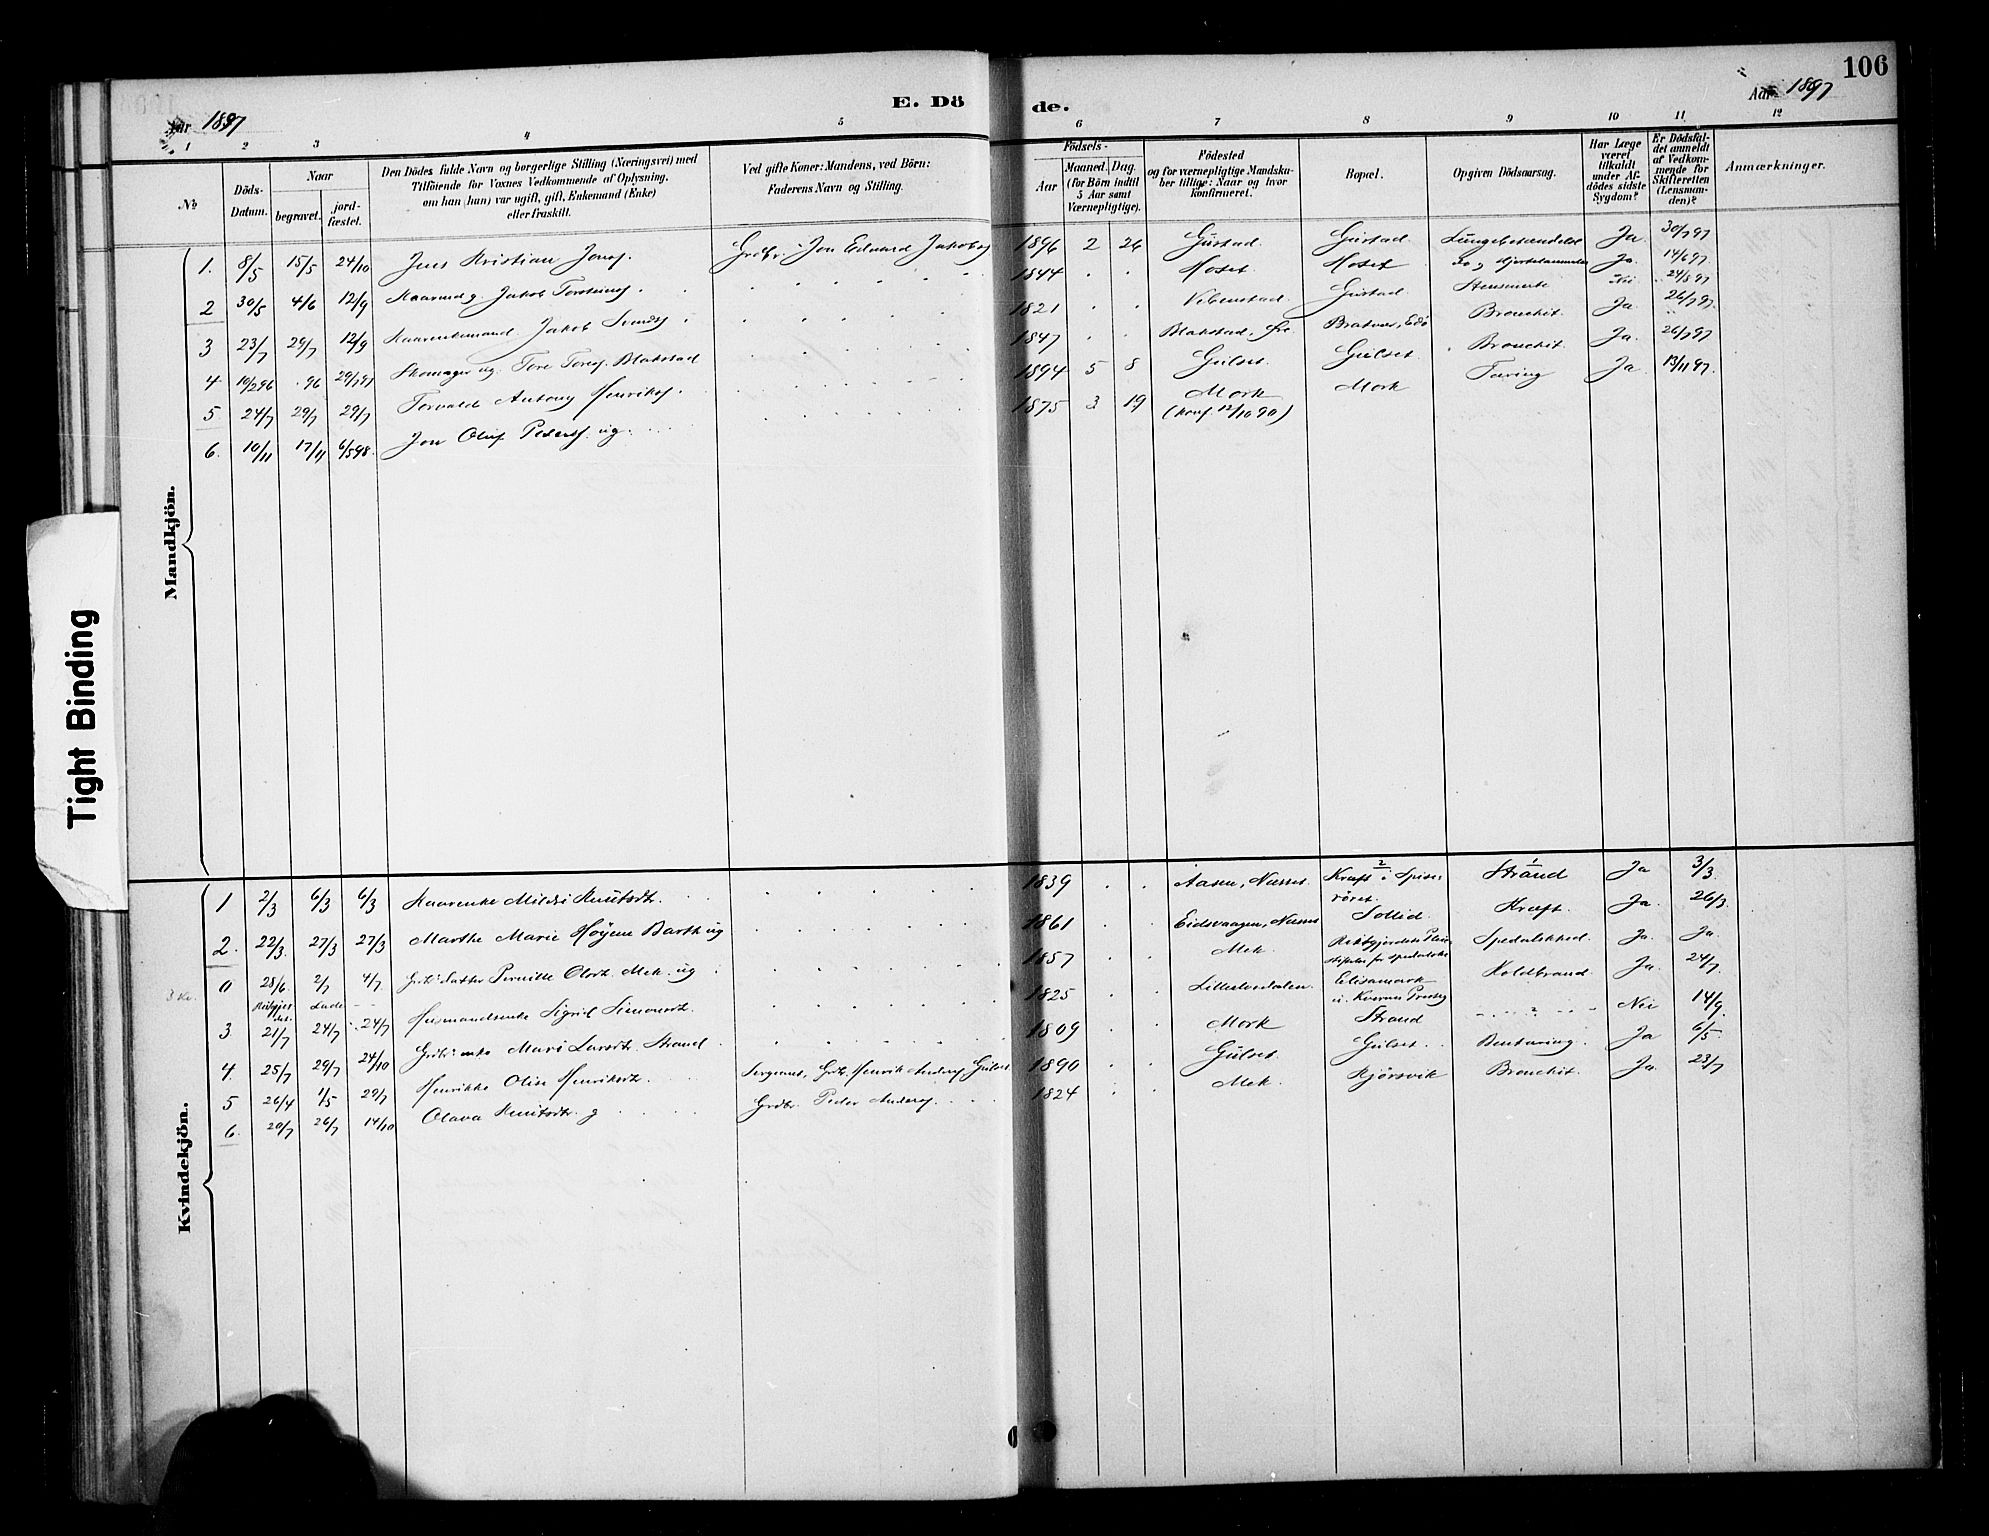 106
E. Dö de.
Aar 1897
Aar 1897
1 2 3 4 5 6 7 8 9 10 11 12
№
Döds-
Datum.
Naar
begravet.
jord-
fæstet.
Den Dödes fulde Navn og borgerlige Stilling (Næringsvei) med
Tilföiende for Voxnes Vedkommende af Oplysning,
om han (hun) var ugift, gift, Enkemand (Enke)
eller fraskilt.
Ved gifte Koner: Mandens, ved Börn:
Faderens Navn og Stilling.
Födsels-
Aar
Maaned. Dag.
(for Börn indtil
5 Aar samt
Værnepligtige).
Födested
og for værnepligtige Mandska-
ber tillige: Naar og hvor
konfirmeret.
Bopæl.
Opgiven Dödsaarsag.
Har Læge
været
tilkaldt
under Af-
dödes sidste
Sygdom?
Er Dödsfal-
det anmeldt
af Vedkom-
mende for
Skifteretten
(Lensman-
den)?
Anmærkninger.
Mandkjön.
1. 8/5 15/5 24/10 Jens Kristian Jonss. Grdbr. Jon Edvard Jakobss 1896 2 26 Gustad. Gustad. Lungebetændelse Ja 30/7 97
2 30/5 4/6 12/9 Kaarmd g. Jakob Torsteins. 1844 Moset. Moset Ja. 14/6 97.
3 23/7 29/7 12/9 Kaarenkemand Jakob Svends 1821 Gustad. Stensmerte Nei 24/8 97
4 10/2 96 96 29/7 97 Skomager ug. Tore Tores. Blakstad 1847 Blakstad, Bronchit. Ja. 26/7 97.
5 24/7 29/7 29/7 Torvald Antony Henriks. 1894 5 8 Gulset. Gulset. Bronchit. Ja. 26/7 97
6. 10/11 17/11 6/5 98. Jon Oluf Peders. ug. 1875 3 19 Mork Mork Tæring Ja 13/11 97.
(konf. 12/10 90)
Tight Binding
Kvindekjön.
1 2/3 6/3 6/3 Kaarenke Mildri Knutsdtr. 1839 Aasen, Næsset. Kræft i Spise- Strand Ja 3/3.
röret.
2. 22/3. 27/3 27/3 Marthe Marie Höyem Barth ug 1861 Eidsvaagen, Næsset Sollid. Kræft. Ja. 26/3.
3 Kr. 0 28/6. 2/7 4/7 Pernille Olsdt. Mek. ug. 1857 Mek. Spedalskhed. Ja. Ja.
3 21/7 24/7 24/7 Husmandsenke Sigrid Simonsdt. 1825 Lilledordalen. Elisamork Koldbrand Ja. 24/7
4. 25/7 29/7 24/10 Mari Larsdtr. Strand. 1809 Mork Strand Nei 14/9.
5 26/4 1/5 29/7 Henrikke Oline Henriksdt. Henrik Anders. Gulset 1890 Gulset. Gulset. Bentæring. Ja 6/5
6. 20/7 26/7 14/10 Olava Knutsdtr. g Grdbr. Peder Anders. 1824 Mek. Kjörsvik Bronchit. Ja. 23/7